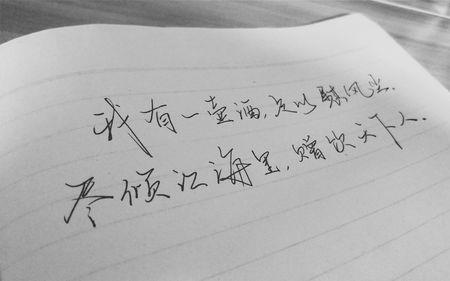 我有一壶酒,足以慰风尘.
尽倾江海里,赠饮天下人.